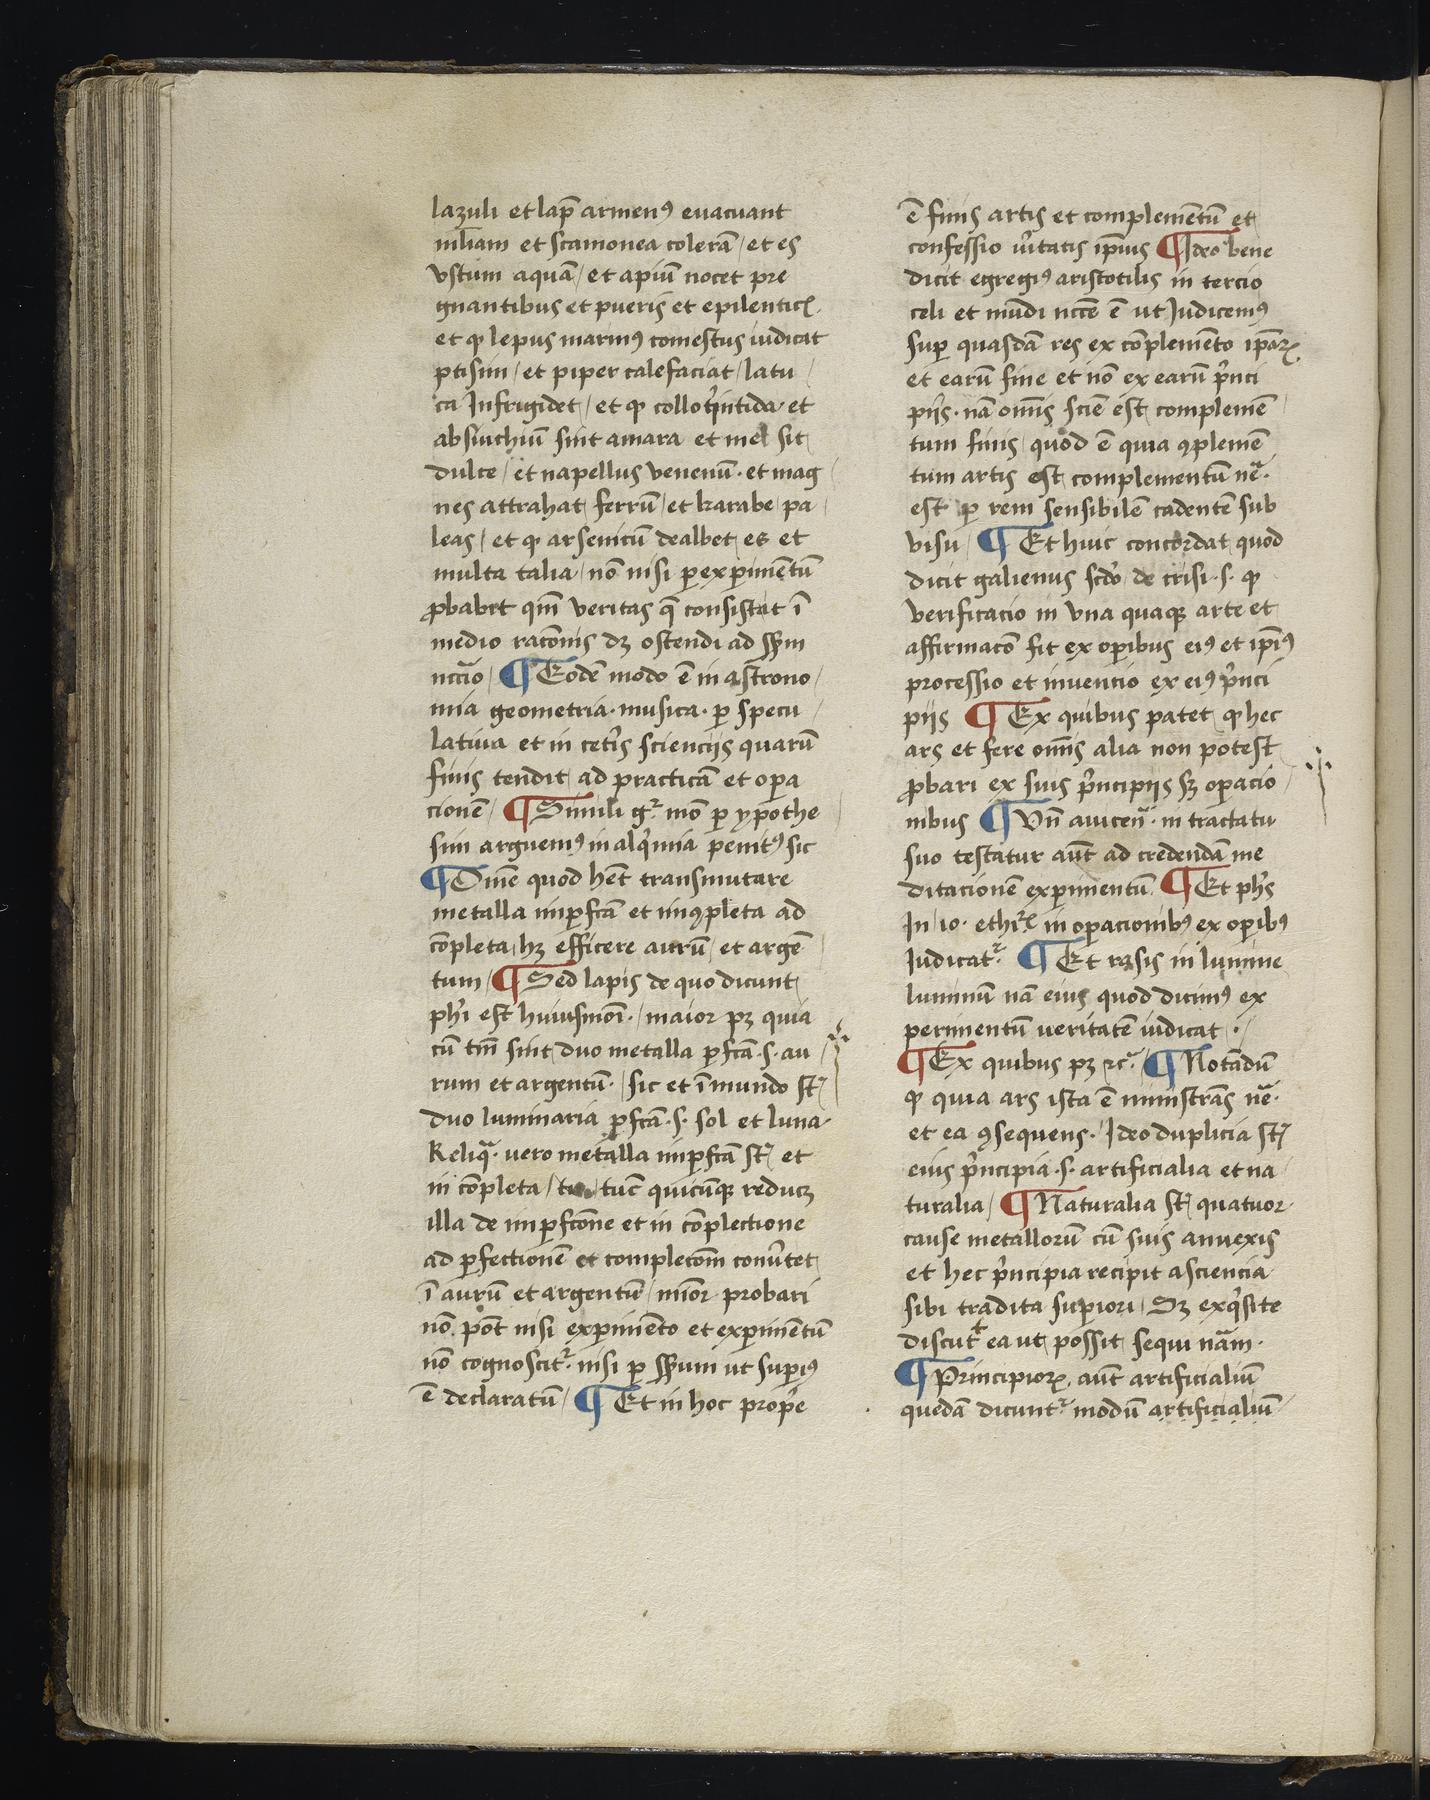 lazuli et lap̄ armenꝰ euacuant
mlīam et scamonea colerā / et es
vstum aquā / et apiū nocet pre
gnantibus et pueris et epilenticꝭ
et ꝙ lepus marinꝰ comestus iudicat
ptisim / et piper calefaciat / latu
ca Infrigidet / et ꝙ colloq̇intida et
absinthiū sint amara et mel sit
dulce / et napellus venenū · et mag
nes attrahat ferrū / et karabe pa
leas / et ꝙ arsenicū dealbet es et
multa talia / nō nisi ꝑ exꝑimētū
ꝓbabȝt qm̄ veritas q̄ consistat ī
medio racōnis dȝ ostendi ad
¶ Eodē modo ē in astrono
mia geometria · musica · ꝑ specu
latiua et in ceteris sciencijs quarū
finis tendit ad practicā et oꝑa
cionē / ¶ Simili gͬ mō ꝑ ypothe
sim arguemꝰ in alqͥmia penitꝰ sic
¶ Om̄e quod hēt transmutare
metalla imꝑfcā et inꝯpleta ad
cōpleta / hȝ efficere aurū / et argē
tum / ¶ Sed lapis de quo dicunt
phī est huiusmōi · / maior pȝ quia
cū tm̄ sint duo metalla ꝑfcā · s · au
rum et argentū · / sic et ī mundo st̄
duo luminaria ꝑfcā · s · sol et luna
Reliqᵃ · uero metalla imꝑfcā st̄ et
in cōpleta / tūc quicūqꝫ reducȝ
illa de imꝑfcōne et in cōplectione
ad ꝑfectionē et complecōm conūtet
ī aurū et argentū / mīor probari
nō pōt nisi exꝑimēto et exꝑimētū
nō cognoscitͬ · nisi ꝑ ut suꝑiꝰ
ē declaratū / ¶ Et in hoc prop̄e
ē finis artis et complemētū et
confessio ūitatis ip̄ius ¶ Ideo bene
dicit egregiꝰ aristotilis in tercio
celi et mūdi nccē ē ut Iudicemꝰ
suꝑ quasdā res ex cōplemēto ip̄aꝝ
et earū fine et nō ex earū pͥnci
pijs · nā om̄is scīe est complemē
tum finis / quod ē quia ꝯplemē
tum artis est complementū nē ·
est ꝑ rem sensibilē cadentē sub
visu / ¶ Et huic concordat quod
dicit galienus scdo de crisi · s · ꝙ
verificacio in vna quaqꝫ arte et
affirmacō fit ex oꝑibus eiꝰ et ip̄iꝰ
processio et inuencio ex eiꝰ pͥnci
pijs ¶ Ex quibus patet ꝙ hec
ars et fere om̄is alia non potest
ꝓbari ex suis pͥncipijs sȝ oꝑacio
nibus ¶ Vn̄ auicenᵃ · in tractatu
suo testatur aūt ad credendā me
ditacionē exꝑimentū ¶ Et phs̄
In / 10 · ethiꝝ in oꝑacionibꝰ ex oꝑibꝰ
Iudicatͬ ¶ Et rasis in lumine
luminū nā eius quod dicimꝰ ex
perimentū ueritatē iudicat · /
¶ Ex quibus pȝ ⁊cͬ / ¶ Notādū
ꝙ quia ars ista ē ministrās nē ·
et ea ꝯsequens · Ideo duplicia st̄
eius pͥncipia · s · artificialia et na
turalia / ¶ Naturalia st̄ quatuor
cause metallorū cū suis annexis
et hec pͥncipia recipit a sciencia
sibi tradita suꝑiori / Sȝ exqͥsite
discut̄ ea ut possit sequi nām ·
¶ Principioꝝ aūt artificialiū
quedā dicuntͬ modū artificialiū